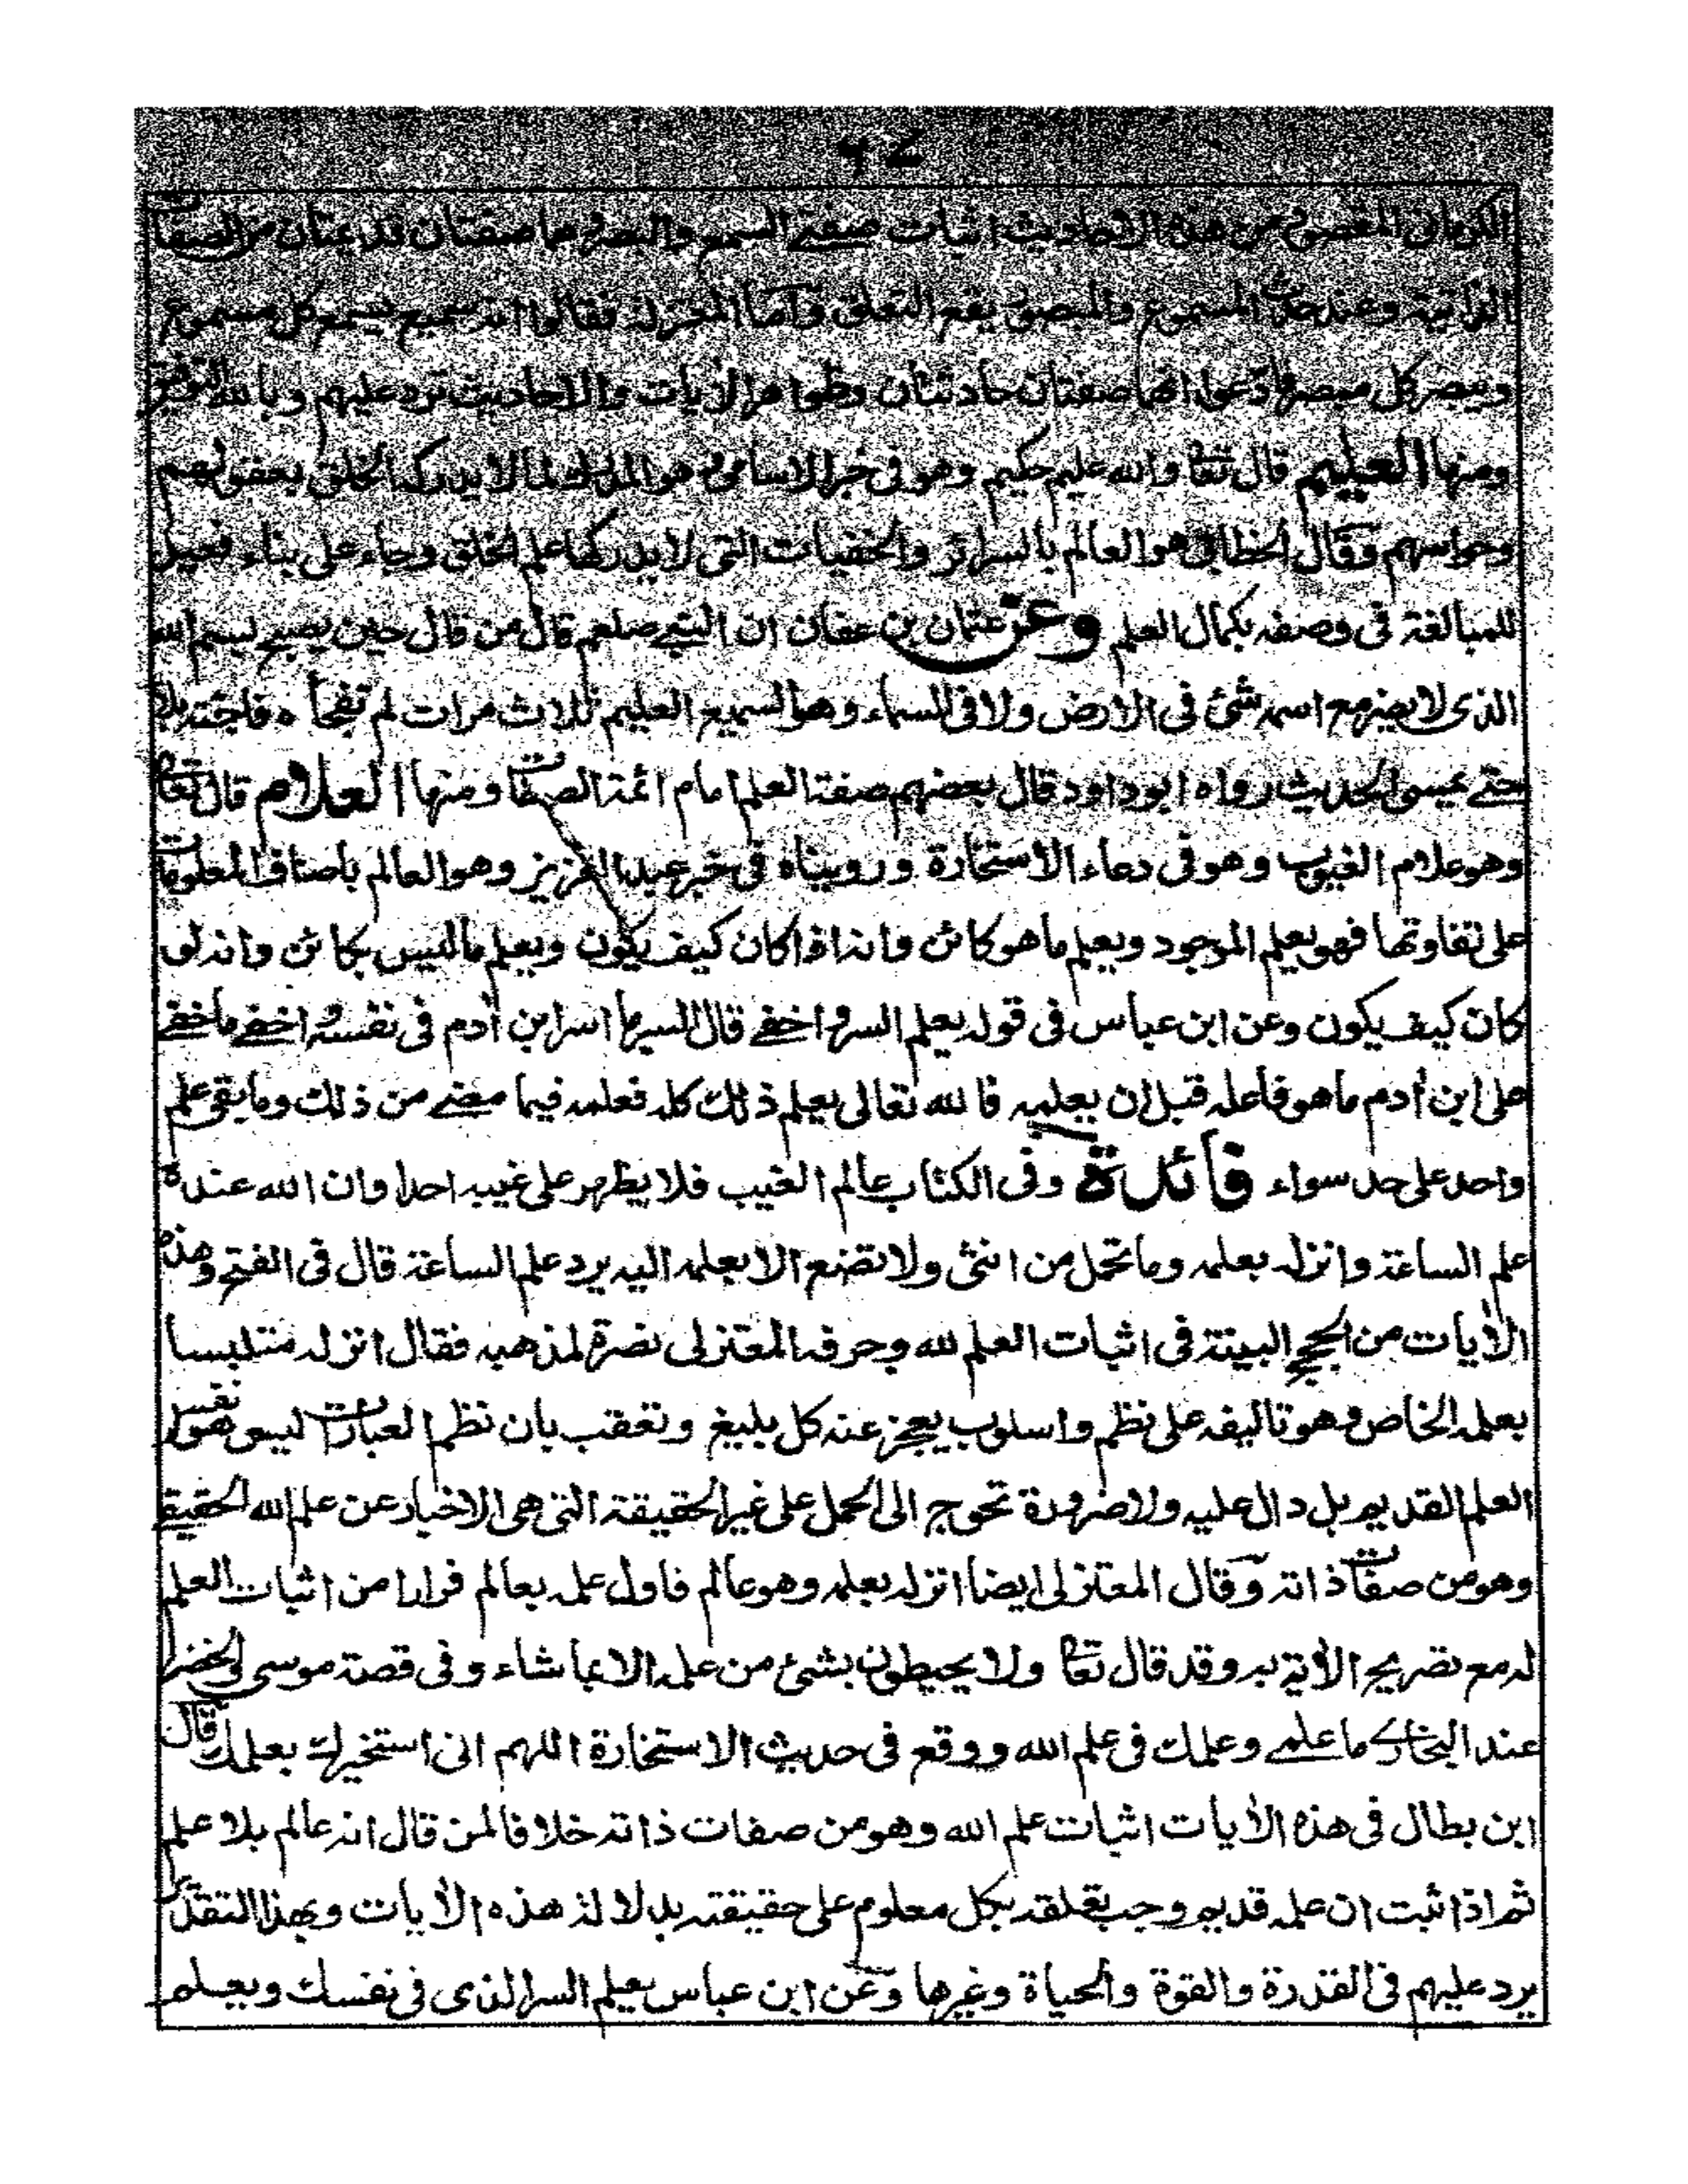 الكرمانى المقصود من هذه الاحاديث اثبات صفتے السمع والبصر وهما صفتان قديمتان من الصفات
الذاتية وعند حدوث المسموع والمبصر يقع التعلق وآما المعتزلة فقالوا انه سميع يسمع كل مسموع
ويبصر كل مبصر فادعوا انهما صفتان حادثتان وظواهر الأيات والاحاديث ترد عليهم وبالله التوفيق
ومنها العليم قال تعا والله عليم حكيم وهو فى خبر الاسامى هو المدرك لما لا يدركه الخلق بعقولهم
وحواسهم وقال الخطابى هو العالم بالسرائر والخفيات التى لا يدركها علم الخلق وجاء على بناء فعيل
للمبالغة فى وصفه بكمال العلم وعن عثمان بن عفان ان النبے صلعم قال من قال حين يصبح بسم الله
الذى لا يضر مع اسمه شئ فى الارض ولا فى السماء وهو السميع العليم ثلاث مرات لم تفجأه فاجئة بلاء
حتے يمسى الحديث رواه ابوداود قال بعضهم صفة العلم امام ائمة الصفات ومنها العلام قال تعا
وهو علام الغيوب وهو فى دعاء الاستخارة وروينا​ه فى خبر عبد العزيز وهو العالم باصناف المعلومات
على تفاوتها فهو يعلم الموجود ويعلم ما هو كائن وانه اذا كان كيف يكون ويعلم ما ليس بكائن وانه لو
كان كيف يكون وعن ابن عباس فى قوله يعلم السر واخفے قال السر ما اسر ابن أدم فى نفسه واخفے ما خفے
على ابن أدم ما هو فاعله قبل ان يعلمه فالله تعالى يعلم ذلك كله فعلمه فيما مضے من ذلك وما بقى علم
واحد على حد سواء فائدة وفى الكتاب عالم الغيب فلا يظهر على غيبه احدا وان الله عنده
علم الساعة وانزله بعلمه وما تحمل من انثى ولا تضع الا بعلمه اليه يرد علم الساعة قال فى الفتح وهذه
الأيات من الحجج البينة فى اثبات العلم لله وحرفه المعتزلى نصرة لمذهبه فقال انزله متلبسا
بعلمه الخاص وهو تاليفه على نظم واسلوب يعجز عنه كل بليغ وتعقب بان نظم العبارات ليس هو نفس
العلم القديم بل دال عليه ولا ضرورة تحوج الى الحمل على غير الحقيقة التى هى الاخبار عن علم الله الحقيقے
وهو من صفات ذاته وقال المعتزلى ايضا انزله بعلمه وهو عالم فاول علمه بعالم فرارا من اثبات العلم
له مع تصريح الأية به وقد قال تعا ولا يحيطون بشئ من علمه الا بما شاء وفى قصة موسى والخضر
عند البخارے ما علمے وعلمك فى علم الله ووقع فى حديث الاستخارة اللهم انى استخيرك بعلمك قال
ابن بطال فى هذه الأيات اثبات علم الله وهو من صفات ذاته خلافا لمن قال انه عالم بلا علم
ثم اذا ثبت ان علمه قديم وجب تعلقه بكل معلوم على حقيقته بدلالة هذه الأيات وبهذا التقدير
يرد عليهم فى القدرة والقوة والحياة وغيرها وعن ابن عباس يعلم السر الذى فى نفسك ويعلم